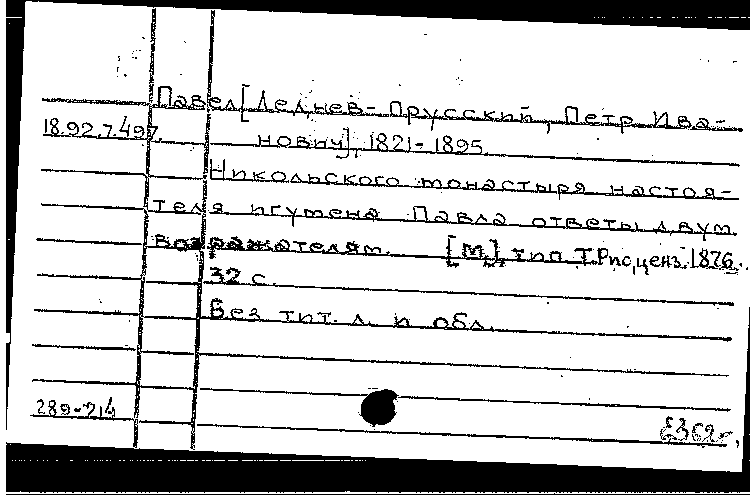 Павел [Леднев-Прусский, Петр Ива-
18.92.7.497. нович], 1821-1895.
Никольского монастыря настоя-
теля игумена Павла ответы двум
возражателям. [М.], тип. Т. Рис, ценз. 1876.
32 с.
Без тит. л. и обл.
289-214